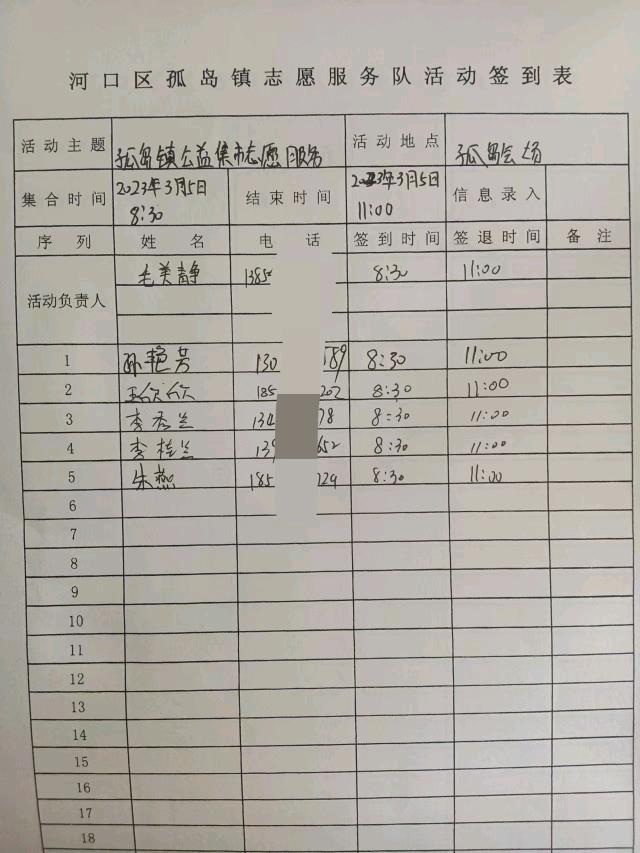 河口区孤岛镇志愿服务队活动签到表
活动主题 孤岛镇公益集市志愿服务 活动地点 孤岛会场
集合时间 2023年3月5日 8:30 结束时间 2023年3月5日 11:00 信息录入
序列 姓名 电话 签到时间 签退时间 备注
活动负责人 毛美静 1385 8:30 11:00
1 孙艳芳 130 189 8:30 11:00
2 王欣欣 185 202 8:30 11:00
3 李秀兰 134 78 8:30 11:00
4 李桂兰 139 652 8:30 11:00
5 朱燕 185 229 8:30 11:00
6
7
8
9
10
11
12
13
14
15
16
17
18